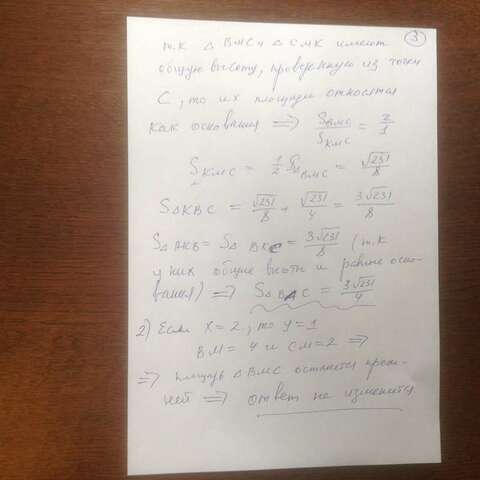 3
т.к Δ BMC и Δ CMK имеют
общую высоту, проведенную из точки
C, то их площади относятся
как основания ⇒ S_BMC / S_KMC = 2/1
S_KMC = 1/2 S_BMC = √231/8
S_ΔKBC = √231/8 + √231/4 = 3√231/8
S_ΔAKB = S_ΔBKC = 3√231/8 (т.к
у них общие высоты и равные осно-
вания) ⇒ S_ΔBAC = 3√231/4
2) Если x=2, то y=1
BM = 4 и CM=2 ⇒
⇒ площадь Δ BMC останется преж-
ней ⇒ ответ не изменится.